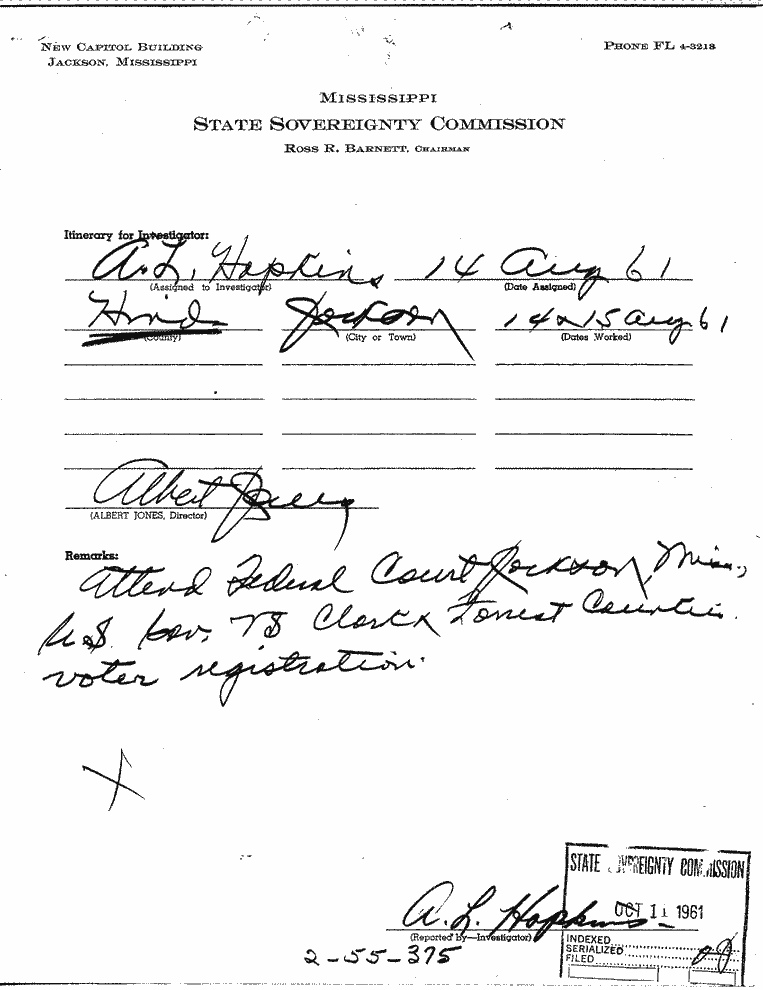 NEW CAPITOL BUILDING
JACKSON, MISSISSIPPI
PHONE FL 4-3218
MISSISSIPPI
STATE SOVEREIGNTY COMMISSION
ROSS R. BARNETT, CHAIRMAN
Itinerary for Investigator:
A. L. Hopkins 14 Aug 61
(Assigned to Investigator) (Date Assigned)
Hinds Jackson 14 & 15 Aug 61
(County) (City or Town) (Dates Worked)
Albert Jones
(ALBERT JONES, Director)
Remarks:
Attend Federal Court Jackson, Miss.,
U.S. Gov. VS Clark & Forrest Counties
voter registration.
STATE SOVEREIGNTY COMMISSION
OCT 11 1961
A. L. Hopkins
(Reported By—Investigator)
INDEXED
SERIALIZED
FILED
2-55-375